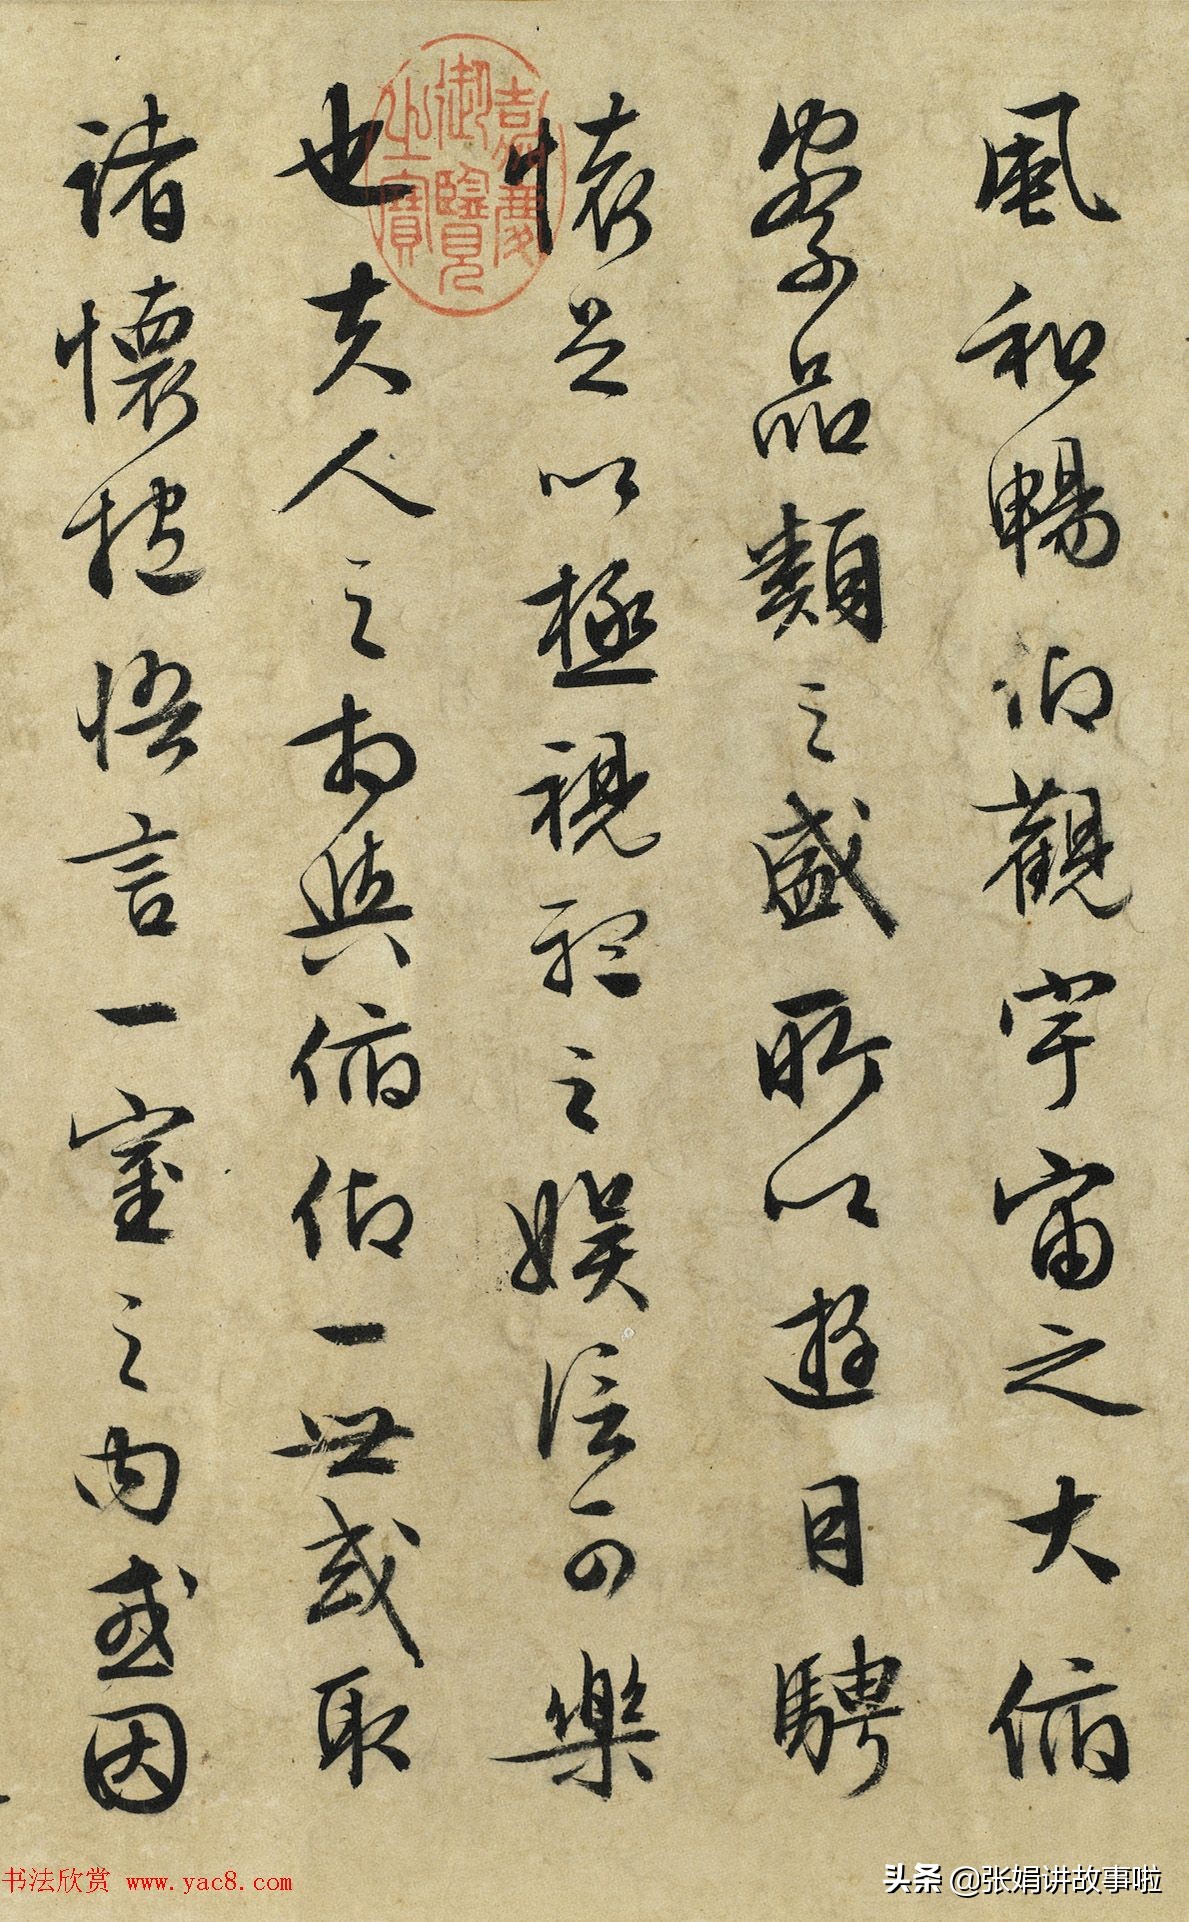 風和暢仰觀宇宙之大俯
察品類之盛所以遊目騁
懷足以極視聽之娛信可樂
也夫人之相與俯仰一世或取
諸懷抱悟言一室之內或因
嘉慶
御覽
之寶
书法欣赏 www.yac8.com
头条 @张娟讲故事啦